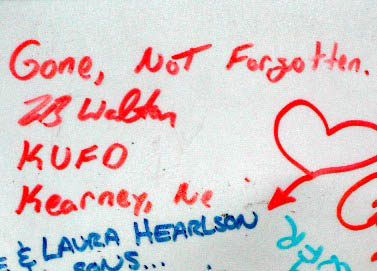 Gone, NoT Forgotten.
Walton
KUFO
Kearney, Ne
& LAURA HEARLSON
SONS...